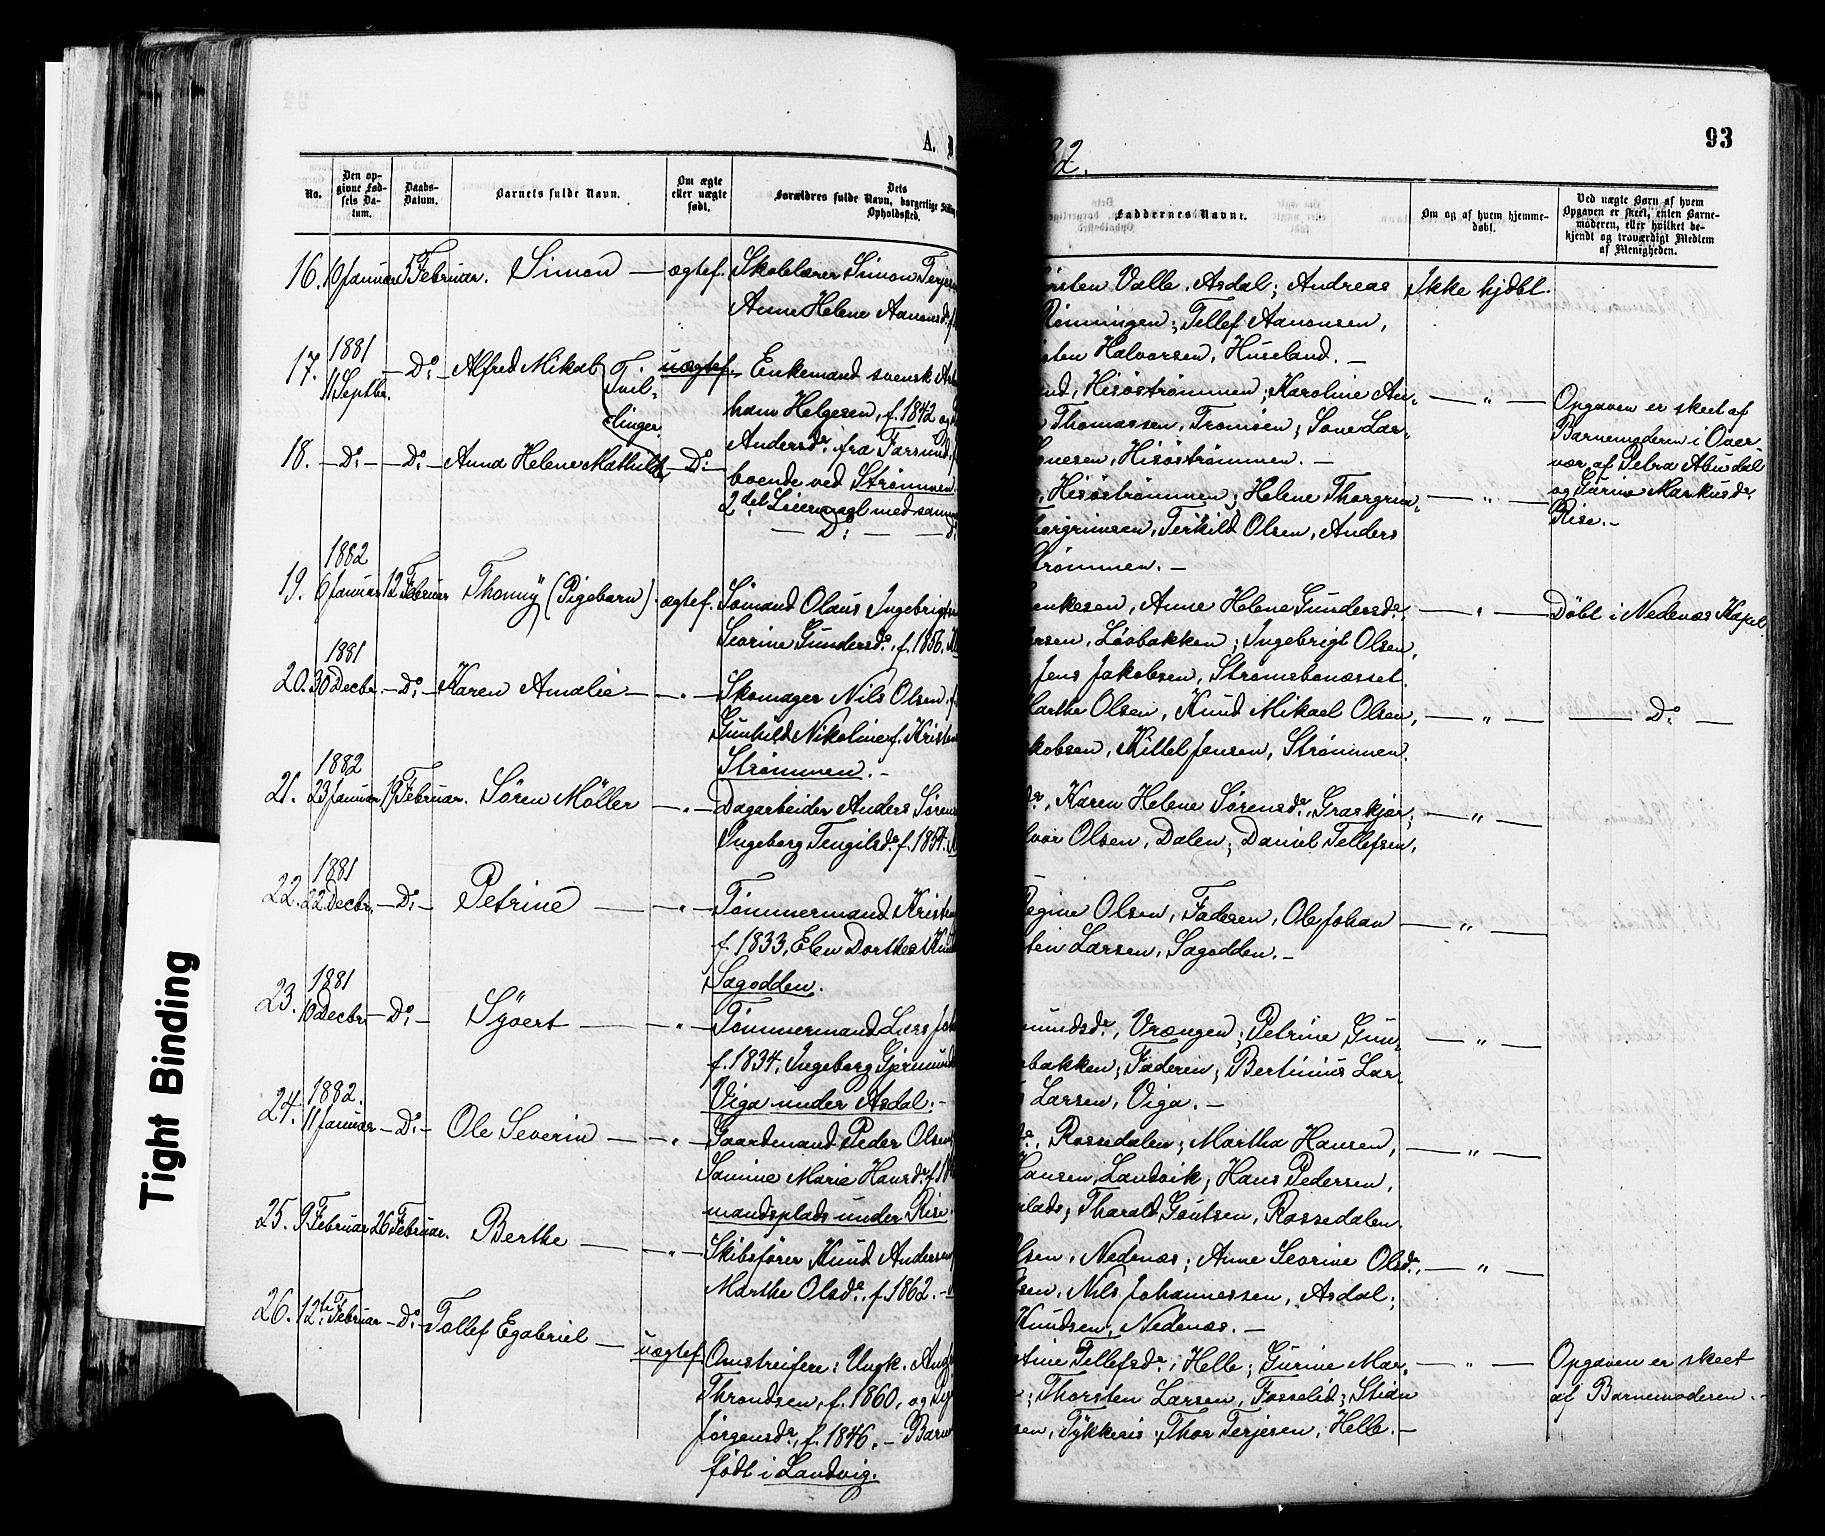 93
A.
82.
No.
Den op-
givne Fød-
sels Da-
tum.
Daabs-
Datum.
Barnets fulde Navn.
Om ægte
eller uægte
født.
Dets
Forældres fulde Navn, borgerlige Stilling
Opholdssted.
Faddernes Navne.
Om og af hvem hjemme-
døbt.
Ved uægte Børn af hvem
Opgaven er skeet, enten Barne-
moderen, eller hvilket be-
kjendt og troværdigt Medlem
af Menigheden.
16. Januar 5 Februar. Simon — ægtef. Skolelærer Simon Terjes
Anne Helene Aanonsdr.
rsten Valle, Asdal; Andreas Ikke hjdbt.
Rønningen; Tellef Aanonsen,
sten Halvorsen, Huseland. —
17. 1881
11 Septbr. — Do: — Alfred Mikal (Tvil-
linger. uægtef. Enkemand svensk Ar
ham Helgesen, f. 1842 og
Andersdr. fra Farsund,
boende ved Strømmen.
2det Leiermaal med samme
und, Hisøstrømmen; Karoline An- — " —
Thomassen, Tromøen; Lar-
nesen, Hisøstrømmen. —
Opgaven er skeet af
Barnemoderen i Over
vær af Petra
og Gurine Markusdr.
Rise. —
18. — Do: — — Do: — Anna Helene Mathilde — Do: —
— Do: — — Do:
, Hisøstrømmen; Helene Thorgrim- — " —
horgrimsen, Terkild Olsen, Anders
Strømmen. —
19. 1882
6 Januar 12 Februar Thonny (Pigebarn). ægtef. Sømand Olaus Ingebrigts
Severine Gundersdr., f. 1856.
enkesen, Anne Helene Gundersdr.; — " — Døbt i Nedenæs Kapel.
ersen, Løvbakken; Ingebrigt Olsen,
Jens Jakobsen, Strømsbonæsset.
20. 1881
30 Decbr. — Do: — Karen Amalie — — " — Skomager Nils Olsen, f.
Gunhild Nikoline f. Kristen
Strømmen. —
arthe Olsen, Knud Mikael Olsen, — " — — Do: —
kobsen, Kittel Jensen, Strømmen.
21. 1882
23 Januar 19 Februar. Søren Møller — " — Dagarbeider Anders Søren
Ingeborg Tengilsdr. f. 1854.
dr., Karen Helene Sørensdr., Græskjær; — " —
lvor Olsen, Dalen; Daniel Tellefsen,
22. 1881
22 Decbr. — Do: — Petrine — — " — Tømmermand Kristen
f. 1833, Elen Dorthea Knu
Sagodden.
Regine Olsen, Faderen, Ole Johan — " —
tein Larsen, Sagodden. —
23. 1881
10 Decbr — Do: — Syvert — — " — Tømmermand Lars Joh
f. 1834, Ingeborg Gjermund
Viga under Asdal. —
mundsdr., Vrængen; Petrine Gun- — " —
bakken; Faderen; Bertinius Lar-
Larsen, Viga. —
24. 1882.
11 Januar — Do: — Ole Severin — — " — Gaardmand Peder Olsen
Samine Marie Hansdr. f. 18
mandsplads under Rise.
dr., Rossedalen; Martha Hansen, — " —
Hansen, Landvik; Hans Pedersen,
plads; Tharald Gautsen, Rossedalen.
25. 9 Februar 26 Februar. Berthe — — " — Skibsfører Knud Andersen
Marthe Olsdr., f. 1862. —
lsen, Nedenæs; Anne Severine Olsdr., — " —
sen, Nils Johannessen, Asdal;
Knudsen, Nedenæs. —
26. 12te Februar — Do: — Tollef Egabriel — uægtef. Omstreifere: Ungk. Aug
Throndsen, f. 1860, og
Jørgensdr., f. 1846. — Barn
født i Landvig.
stine Tellefsdr., Helle; Gurine Mar- — " — Opgaven er skeet
; Thorsten Larsen, Fosselid; Stian af Barnemoderen. —
sen, Tykkeris; Thor Terjesen, Helle. —
Tight Binding